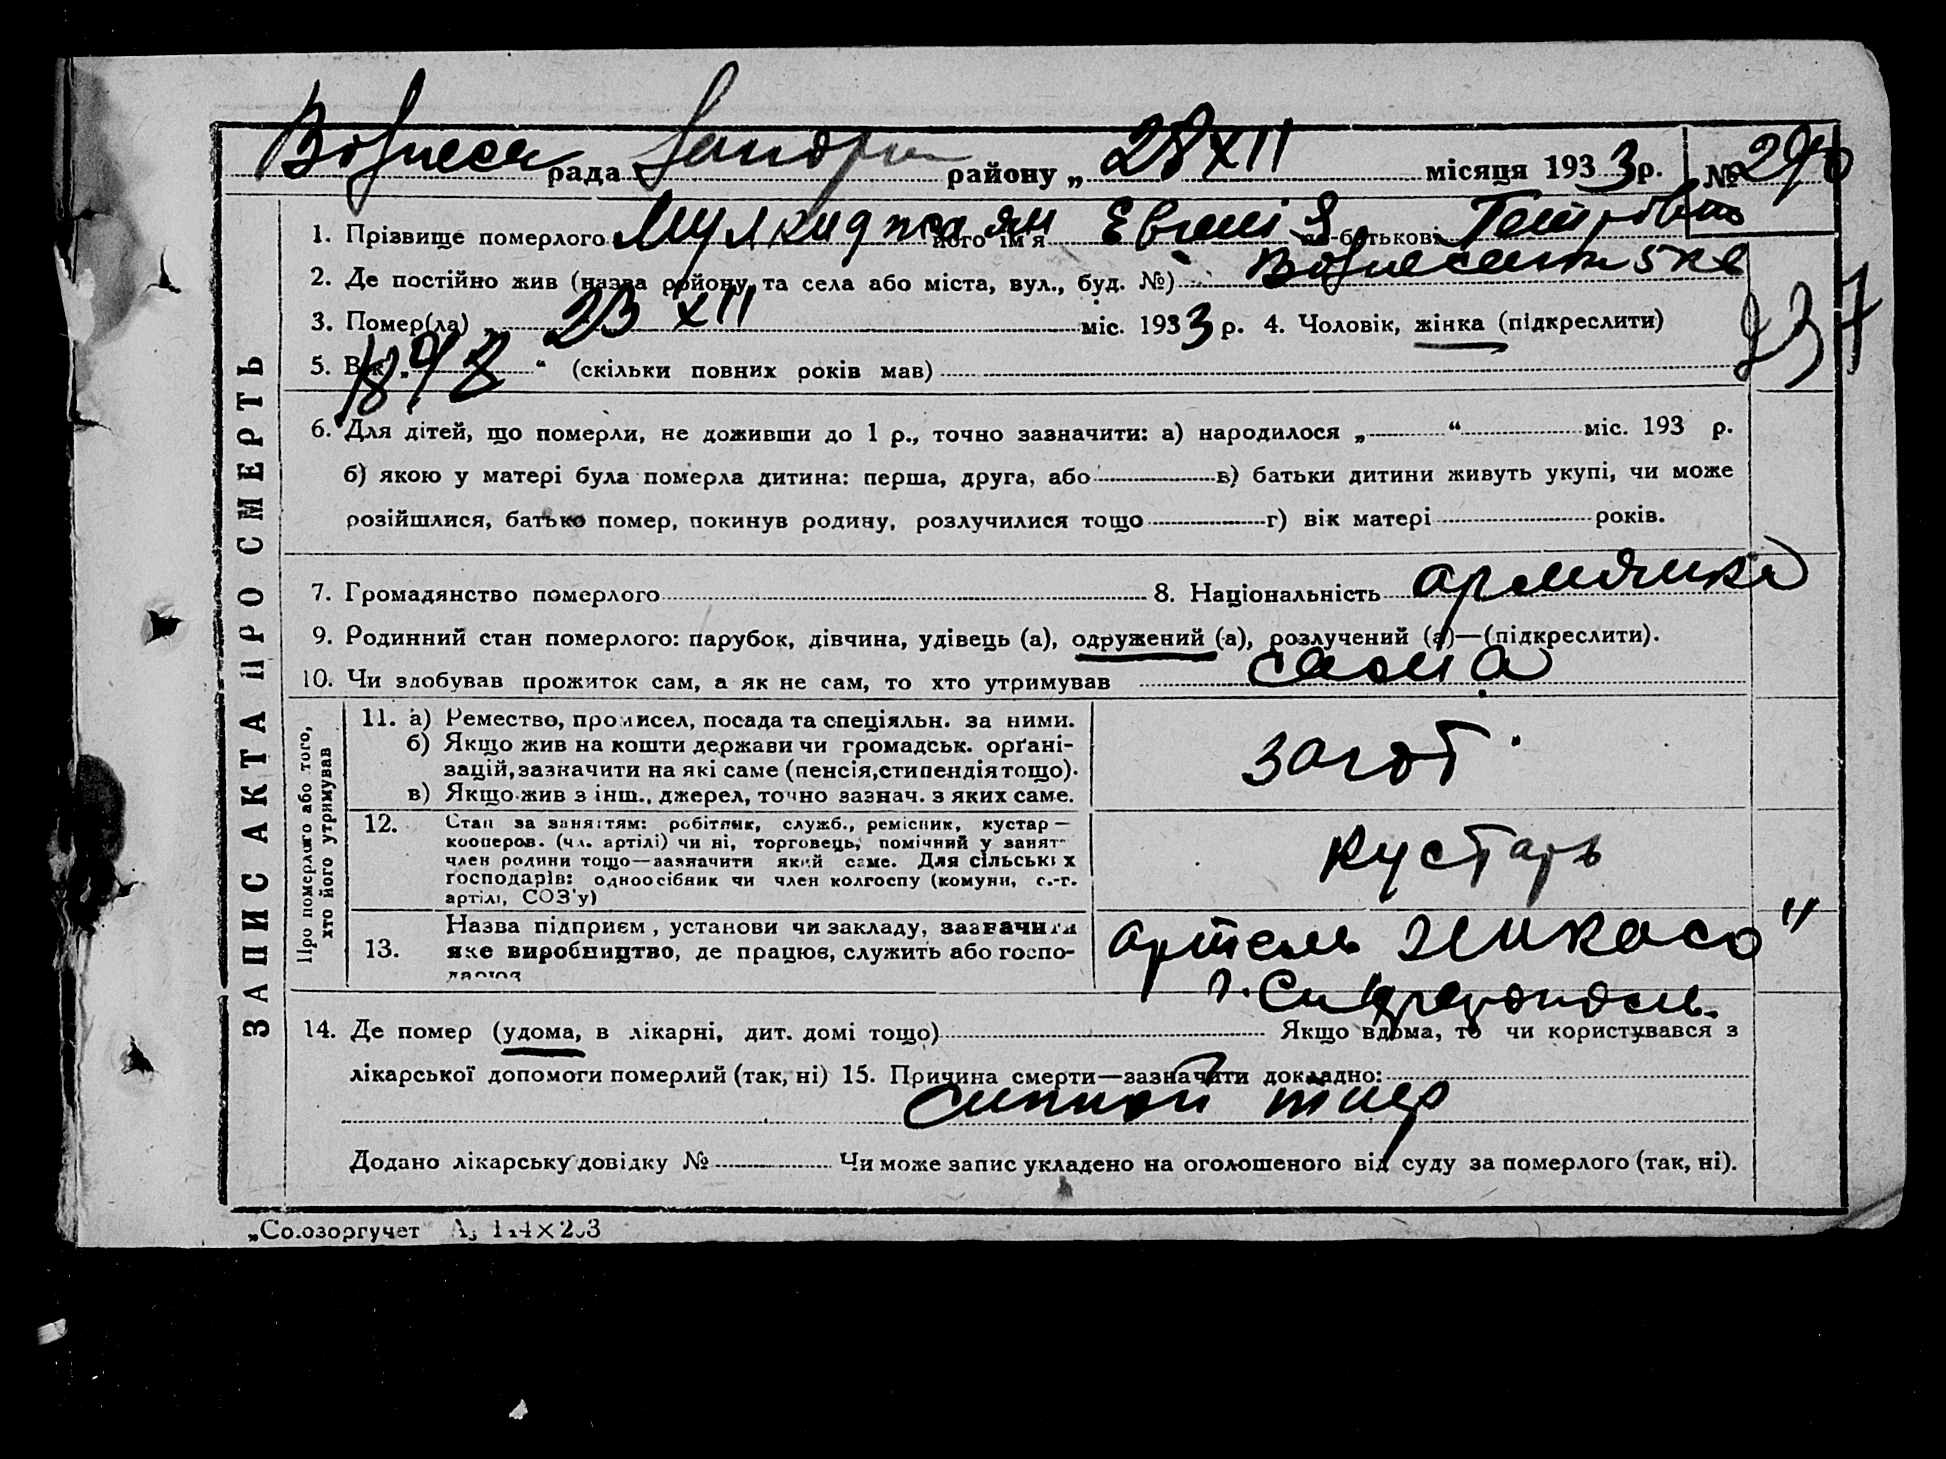 Вознесен рада Запоріж району „ 28 XII місяця 193 3 р. № 290
1. Прізвище померлого Мулкиджаян його ім'я Евгенія по батькові Петровна
2. Де постійно жив (назва району та села або міста, вул., буд. №)
3. Помер(ла) „ 23 XII міс. 193 3 р. 4. Чоловік, жінка (підкреслити)
237
5. Вік „ 1898 “ (скільки повних років мав)
6. Для дітей, що померли, не доживши до 1 р., точно зазначити: а) народилося „ “ міс. 193 р.
б) якою у матері була померла дитина: перша, друга, або в) батьки дитини живуть укупі, чи може
розійшлися, батько помер, покинув родину, розлучилися тощо г) вік матері років.
7. Громадянство померлого 8. Національність армянка
9. Родинний стан померлого: парубок, дівчина, удівець (а), одружений (а), розлучений (а)—(підкреслити).
10. Чи здобував прожиток сам, а як не сам, то хто утримував сама
11. а) Ремество, промисел, посада та спеціяльн. за ними.
б) Якщо жив на кошти держави чи громадськ. орґані-
зацій, зазначити на які саме (пенсія, стипендія тощо).
в) Якщо жив з інш., джерел, точно зазнач. з яких саме.
загот.
12. Стан за заняттям: робітник, служб., ремісник, кустар—
кооперов. (чл. артілі) чи ні, торговець, помічний у занят-
член родини тощо—зазначити який саме. Для сільських
господарів: одноосібник чи член колгоспу (комуни, с.-г.
артілі, СОЗ'у)
кустарь
13. Назва підприєм, установи чи закладу, зазначити
яке виробництво, де працює, служить або госпо-
дарює
артель "
г.
14. Де помер (удома, в лікарні, дит. домі тощо) Якщо вдома, то чи користувався з
лікарської допомоги померлий (так, ні) 15. Причина смерти—зазначити докладно:
сипной тиф
Додано лікарську довідку № Чи може запис укладено на оголошеного від суду за померлого (так, ні).
ЗАПИС АКТА ПРО СМЕРТЬ
Про померлого або того,
хто його утримував
„Союзоргучет